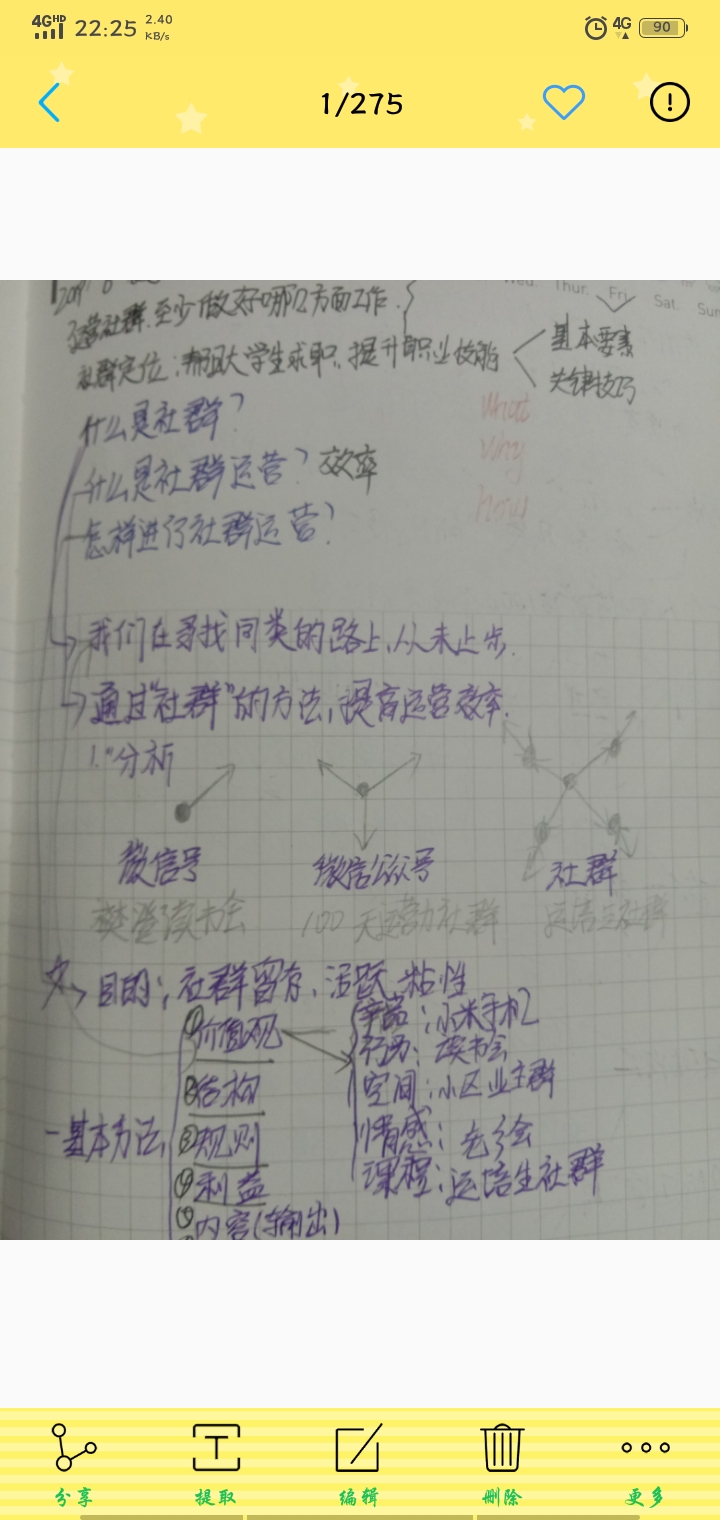 4G HD 22:25 2.40 KB/s 4G 90
1/275
Thur. Fri. Sat. Sun
运营社群.至少做好哪几方面工作.
社群定位:帮助大学生求职.提升职业技能
基本要素
关键技巧
什么是社群?
what
什么是社群运营?效率
why
怎样进行社群运营?
how
我们在寻找同类的路上,从未止步.
通过"社群"的方法,提高运营效率.
1."分析
微信号 微信公众号 社群
樊登读书会 100天运营社群
目的:社群留存、活跃、粘性
一基本方法
①价值观
②结构
③规则
④利益
⑤内容(输出)
产品:小米手机
行为:读书会
空间:小区业主群
情感:老乡会
课程:运培生社群
分享 提取 编辑 删除 更多